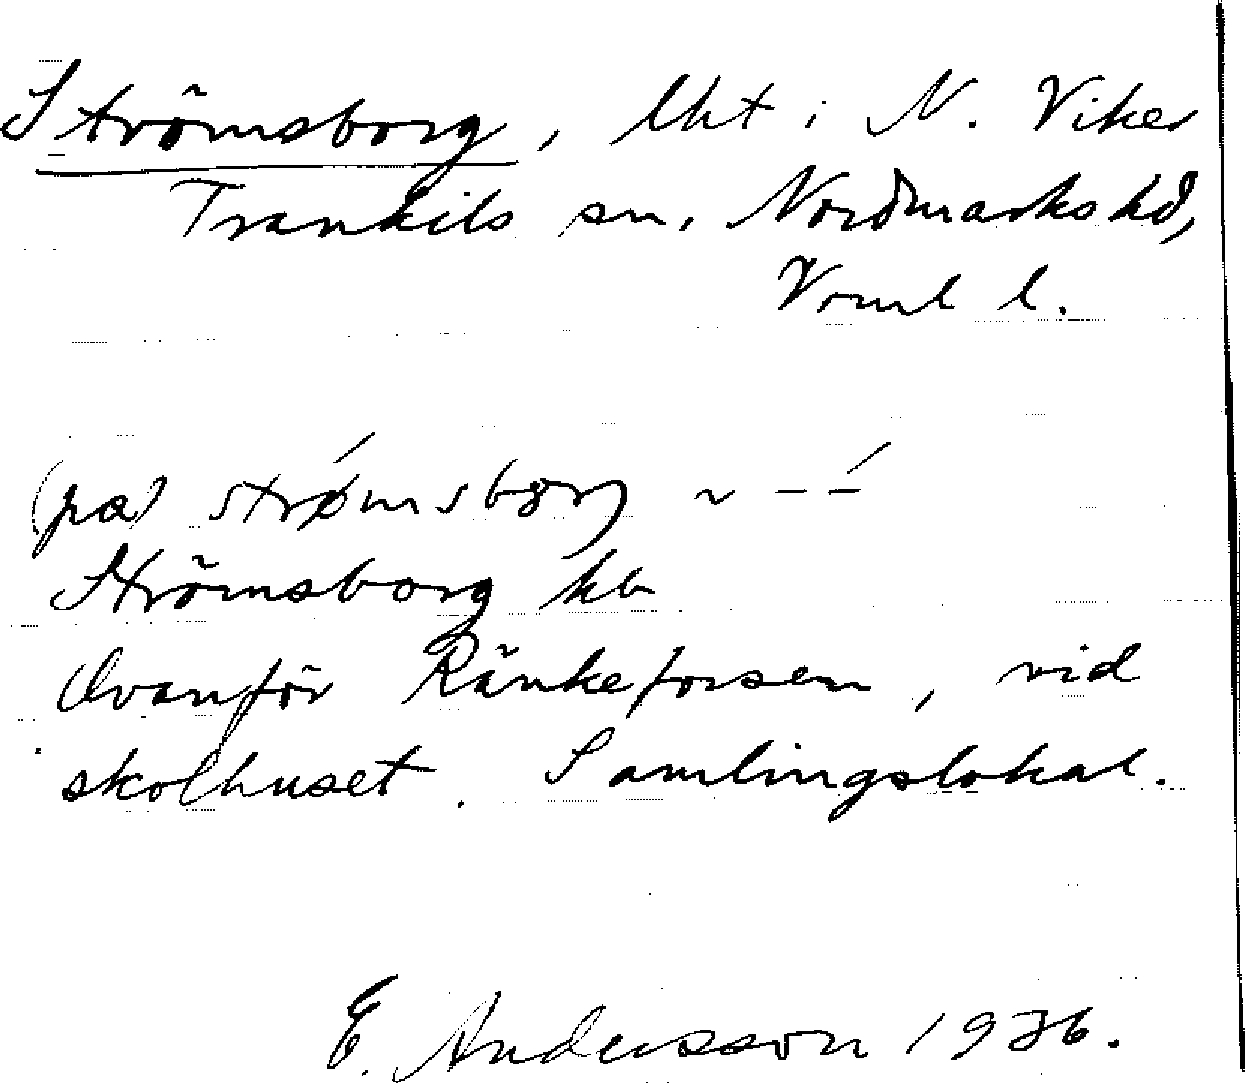 Strömsborg, lht i N. Viker
Trankils sn, Nordmarks hd,
Vrml l.
(på) strǿmsbǫrj ~ – –́
Strömsborg kb
Ovanför Ränkeforsen, vid
skolhuset. Samlingslokal.
E. Andersson 1936.